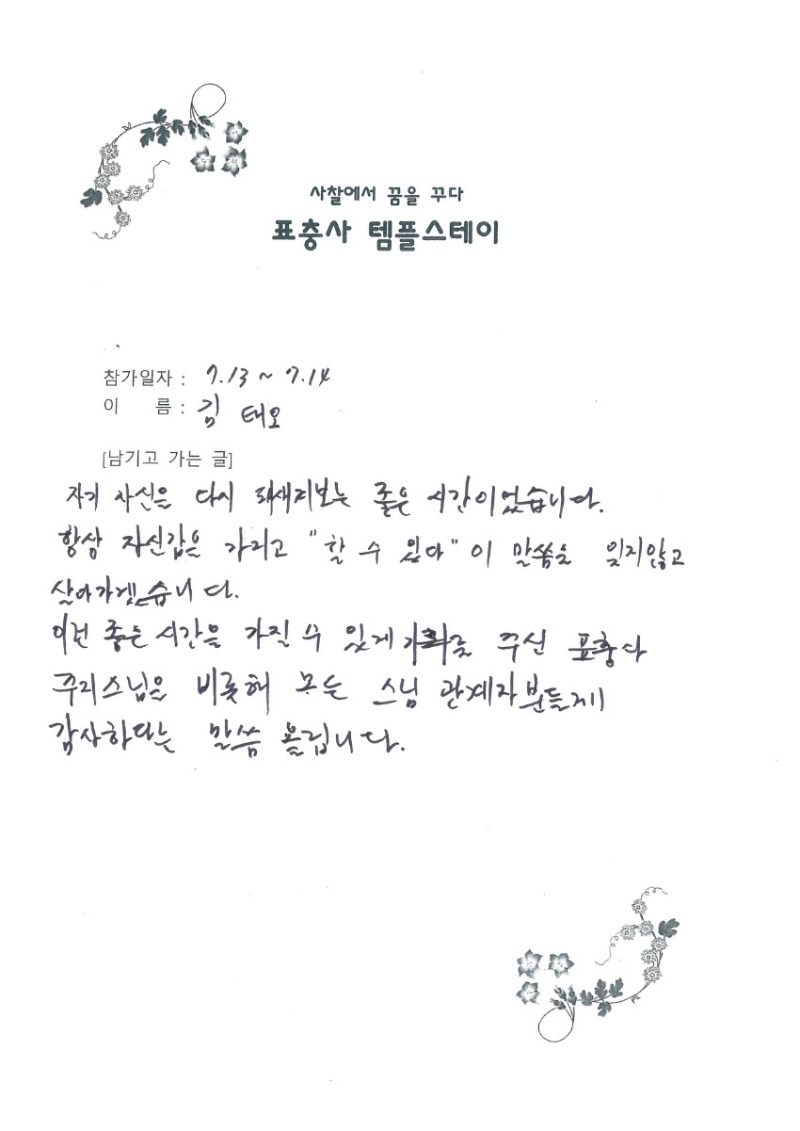 사찰에서 꿈을 꾸다
표충사 템플스테이
참가일자 : 7.13 ~ 7.14
이 름 : 김 태오
[남기고 가는 글]
자기 자신을 다시 되새겨보는 좋은 시간이었습니다.
항상 자신감을 가지고 "할 수 있다" 이 말씀을 잊지않고
살아가겠습니다.
이런 좋은 시간을 가질 수 있게 주신 표충사
주지스님을 비롯해 모든 스님 관계자분들께
감사하다는 말씀 올립니다.